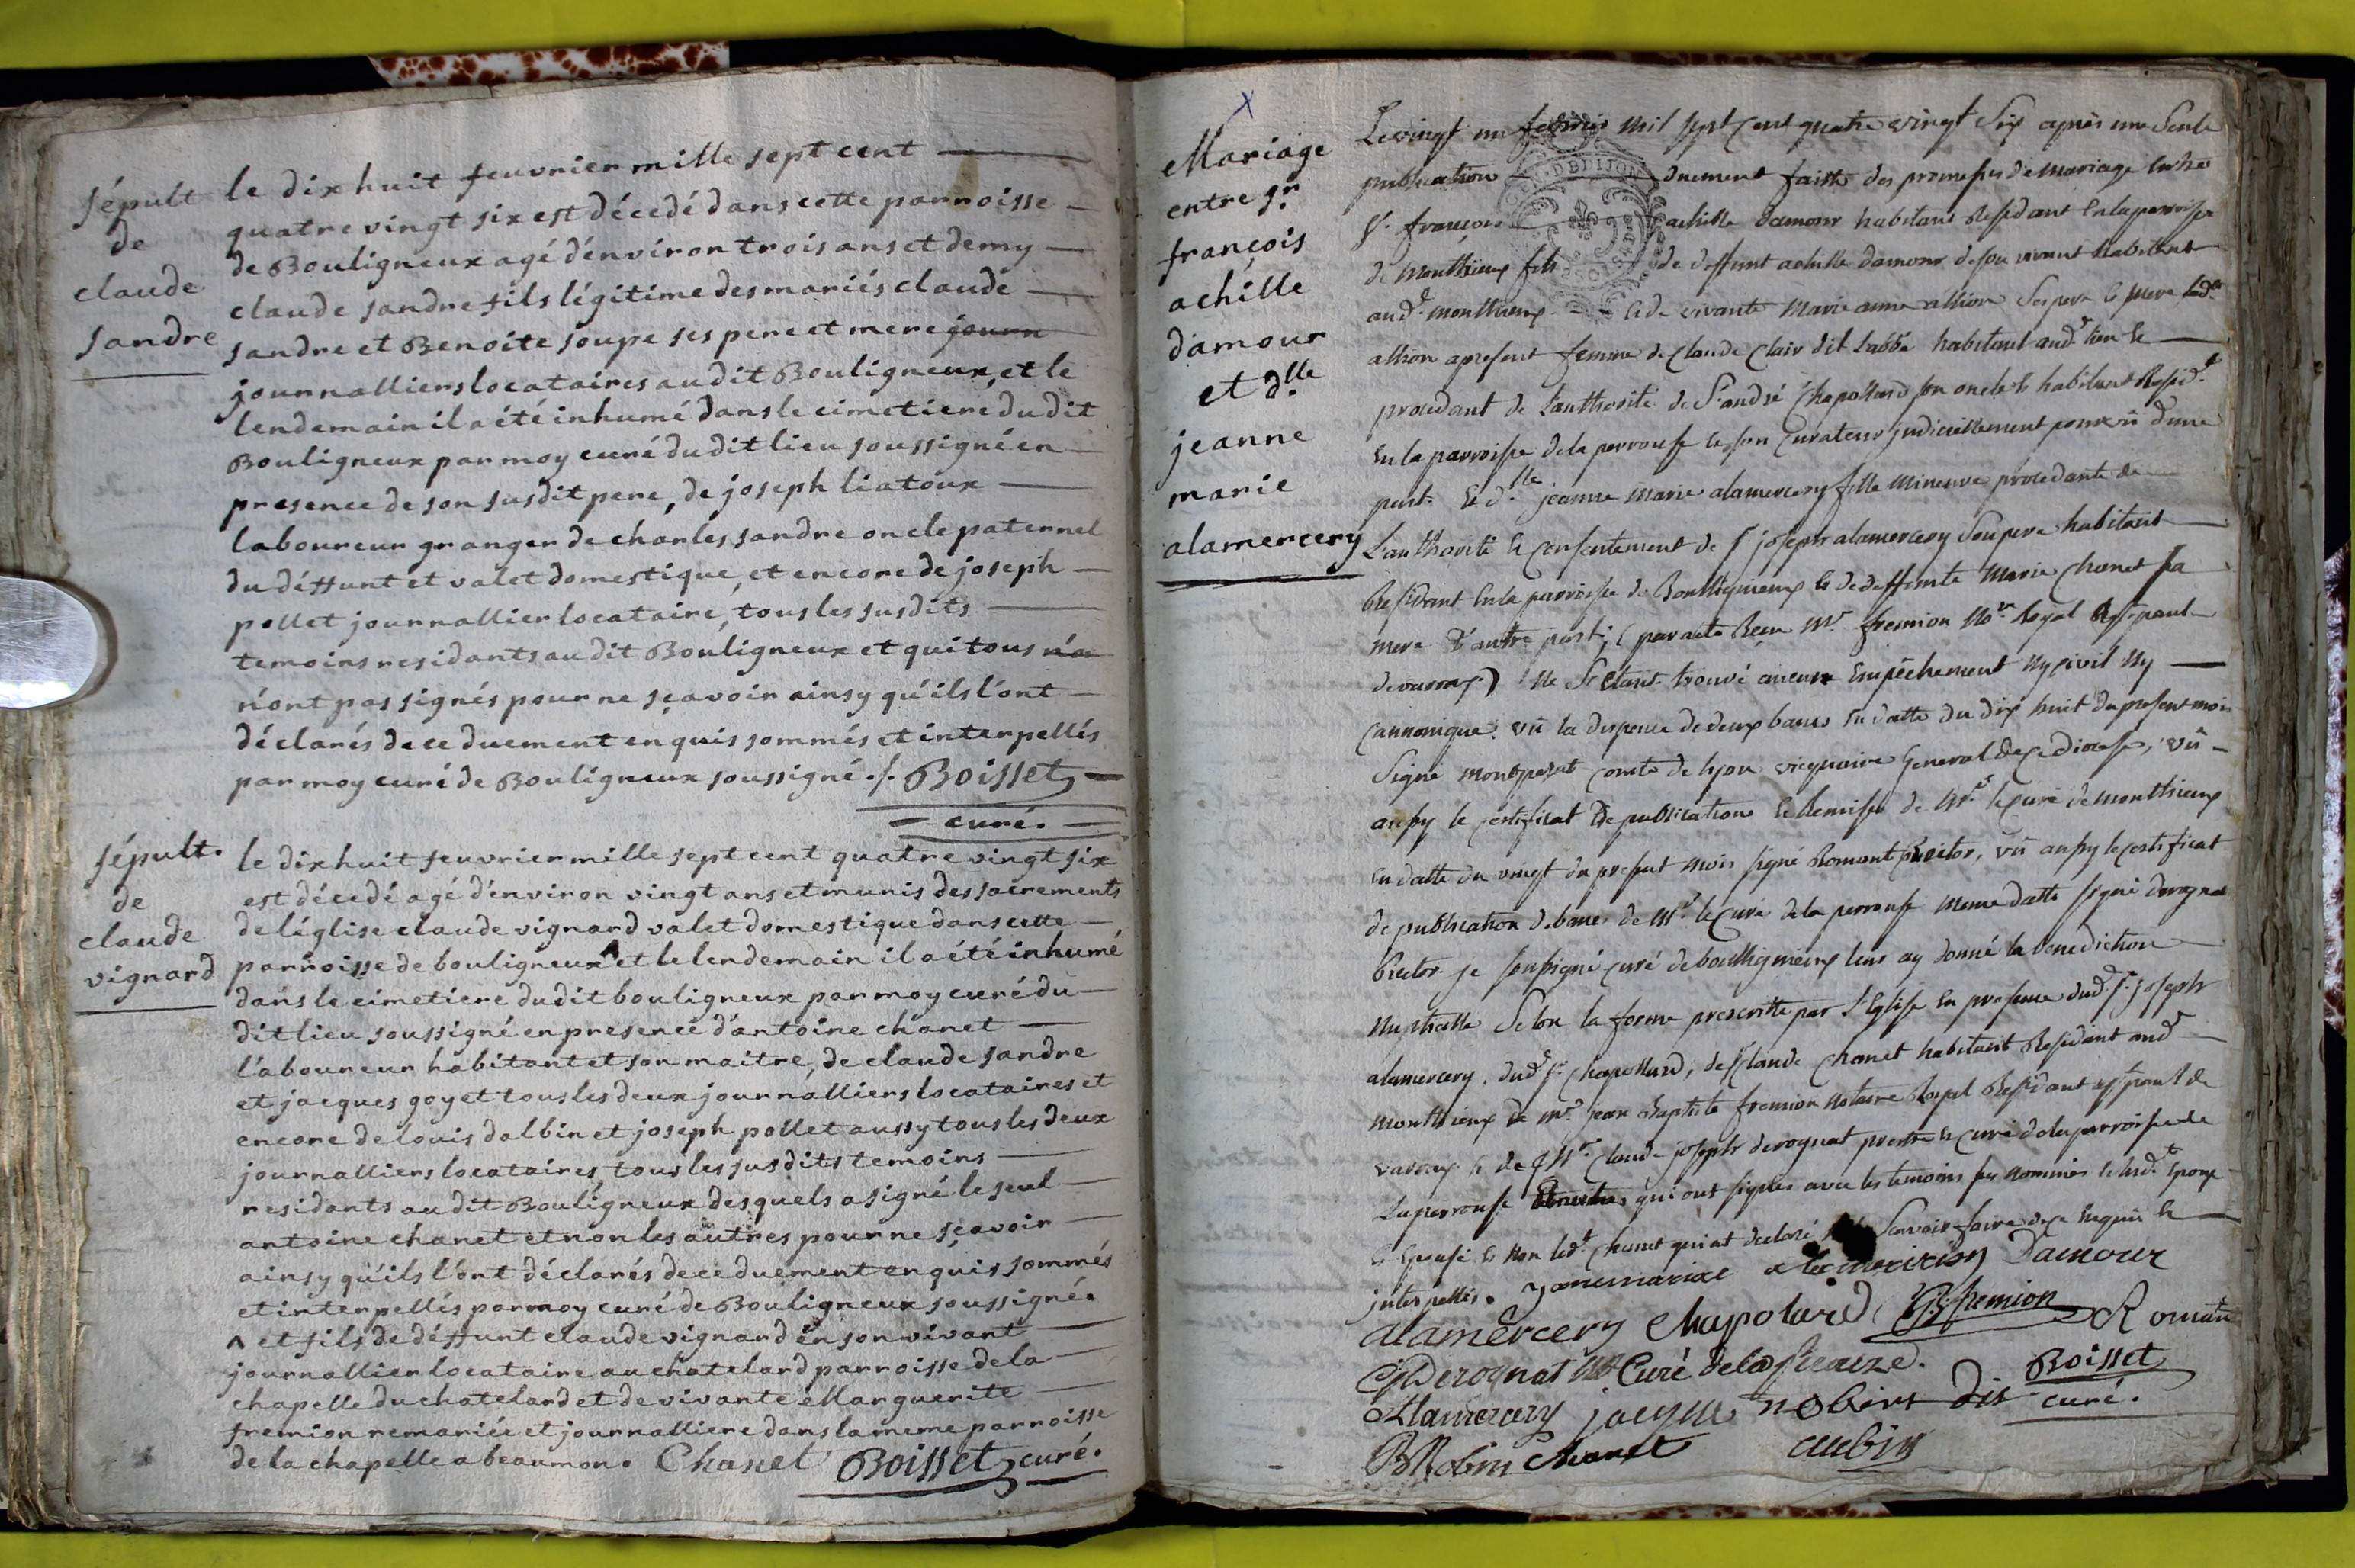 sépult
de
claude
sandre
le dix huit feuvrier mille sept cent
quatre vingt six est décedé dans cette parroisse
de Bouligneux agé d'environ trois ans et demy
claude sandre fils légitime des mariés claude
sandre et Benoite soupe ses pere et mere journ
journalliers locataires au dit Bouligneux, et le
lendemain il a été inhumé dans le cimetiere du dit
Bouligneux par moy curé du dit lieu soussigné en
presence de son susdit pere, de joseph liatoux
laboureur granger de charles sandre oncle paternel
du déffunt et valet domestique, et encore de joseph
pollet journallier locataire, tous les susdits
temoins residants au dit Bouligneux et qui tous n'o
n'ont pas signés pour ne sçavoir ainsy qu'ils l'ont
déclarés de ce duement enquis sommés et interpellés
par moy curé de Bouligneux soussigné ./. Boisset
curé.
sépult.
de
claude
vignard
le dix huit feuvrier mille sept cent quatre vingt six
est décedé agé d'environ vingt ans et munis des sacrements
de l'église claude vignard valet domestique dans cette
parroisse de bouligneux ^ et le lendemain il a été inhumé
dans le cimetiere du dit bouligneux par moy curé du
dit lieu soussigné en presence d'antoine chanet
l'aboureur habitant et son maitre, de claude sandre
et jacques goyet tous les deux journalliers locataires et
encore de louis dalbin et joseph pollet aussy tous les deux
journalliers locataires, tous les susdits temoins
residants au dit Bouligneux desquels a signé le seul
antoine chanet et non les autres pour ne sçavoir
ainsy qu'ils l'ont déclarés de ce duement enquis sommés
et interpellés par moy curé de Bouligneux soussigné.
^ et fils de déffunt claude vignard en son vivant
journallier locataire au chatelard parroisse de la
chapelle du chatelard et de vivante Marguerite
fremion remariée et journalliere dans la meme parroisse
de la chapelle a beaumon. Chanel Boisset curé.
Mariage
entre sr
françois
achille
damour
et dlle
jeanne
marie
alamercery
Le vingt un fevrier mil sept cent quatre vingt six après une seule
publication duement faitte des promesses de mariage entre
sr françois achille damour habitant Residant en la parroisse
de monthieux fils de deffunt achille damour de son vivant habitant
aud. monthieux et de vivante Marie anne allion ses pere et mere lad.
allion apresent femme de Claude Clair dit Labbé habitant aud. lieu et
procedant de L'authorité de Sr andré Chapollard son oncle habitant Resid.t
en la parroisse de la perrouse et son Curateur judiciellement pourvû d'une
part. et d.lle jeanne Marie alamercery fille Mineure procedante de
L'authorité et Consentement de sr joseph alamercery son pere habitant
Residant en la parroisse de Boulligneux et de deffunte Marie Chanet sa
mere d'autre part; (par acte Reçu Mr. fremion No.re Royal a St. paul
de varax) Ne s'etant trouvé aucun Empêchement Ny civil Ny
Cannonique. vû la dispense de deux bancs en datte du dix huit du present mois
signé montpezat comte de lyon vicquaire General de ce diocese, vû
aussy le certificat de publication et Remise de Mr. le Curé de monthieux
en datte du vingt du present mois signé Romant Rector, vû aussy le certificat
de publication de bancs de Mr. le Curé de la perrouse meme datte signé derognat
Rector je soussigné curé de boulligneux leur ay donné la benediction
Nuptialle selon la forme prescritte par l'Eglise en presence dud. sr. joseph
alamercery, dud. sr. Chapollard, de Claude Chanet habitant Residant aud.
monthieux de Mr. jean Baptiste fremion Notaire Royal Residant a st. paul de
varax et de Mr. Claude joseph derognat pretre et curé de la parroisse de
La perrouse qui ont signés avec les temoins sus nommés le sud. Epoux
et Epouse et Non led. Chanet qui at declaré ne Sçavoir faire de ce Enquis et
interpellés. jannemariae alamercery Damour
alamercery Chapolard J.B. fremion Roman
C.J. Derognat Curé de la peirouze. Boisset
Alamercery jacque robins dit curé.
B Robin Chanet aubin